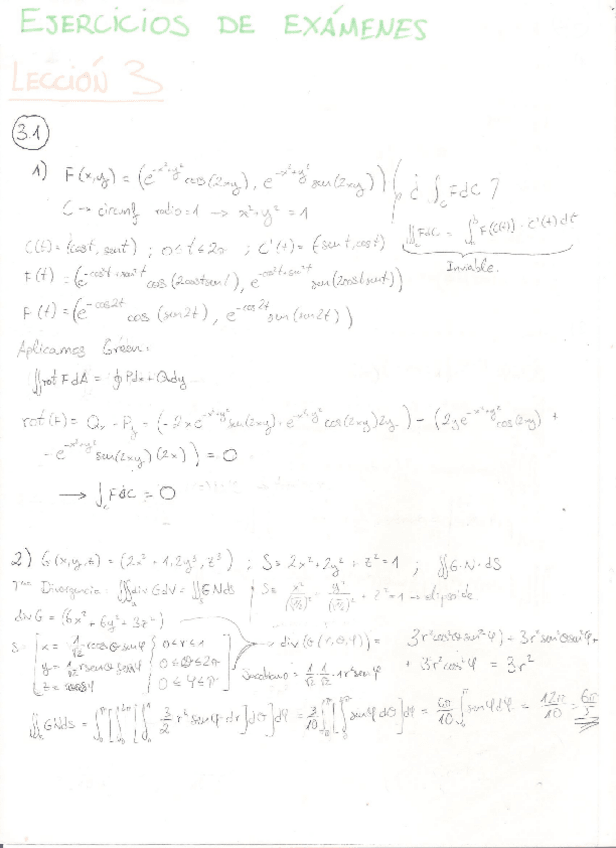 EJERCICIOS DE EXÁMENES
LECCIÓN 3
3.1
1) F(x,y) = (e^{-x²+y²} cos(2xy), e^{-x²+y²} sen(2xy)) ¿ ∫_C F dC ?
C → circunf radio=1 → x²+y² = 1
∫_C F dC = ∫_a^b F(C(t)) · C'(t) dt
Inviable.
C(t) = (cost, sent) ; 0≤t≤2π ; C'(t) = (-sent, cost)
F(t) = (e^{-cos²t+sen²t} cos(2costsent), e^{-cos²t+sen²t} sen(2costsent))
F(t) = (e^{-cos2t} cos(sen2t), e^{-cos2t} sen(sen2t))
Aplicamos Green:
∬rot F dA = ∮Pdx + Qdy
rot(F) = Qx - Py = (-2xe^{-x²+y²} sen(2xy) + e^{-x²+y²} cos(2xy)2y) - (2ye^{-x²+y²} cos(2xy) +
- e^{-x²+y²} sen(2xy)(2x)) = 0
→ ∫_C F dC = 0
2) G(x,y,z) = (2x³+1, 2y³, z³) ; S = 2x²+2y²+z²=1 ; ∬G·N·dS
Divergencia: ∭div G dV = ∬GNds
S = x²/(1/√2)² + y²/(1/√2)² + z² = 1 → elipsoide
div G = (6x²+6y²+3z²)
S =
x = 1/√2 r cosθ senφ 0≤r≤1
y = 1/√2 r senθ senφ 0≤θ≤2π
0≤φ≤π
→ div(G(r,θ,φ)) = 3r²cos²θsen²φ + 3r²sen²θsen²φ +
+ 3r²cos²φ = 3r²
Jacobiano = 1/√2 · 1/√2 · 1 r²senφ
= 3/10 ∫_0^π [∫_0^{2π} senφ dθ] dφ = 6π/10 ∫_0^π senφ dφ = 12π/10 = 6π/5